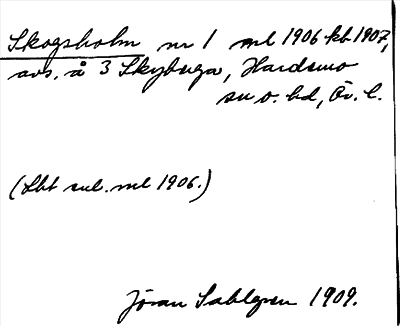 Skogsholm nr 1 ml 1906 kb 1907,
avs. å 3 Skyberga, Hardemo
sn o. hd, Ör. l.
(Lbt enl. ml 1906.)
Jöran Sahlgren 1909.